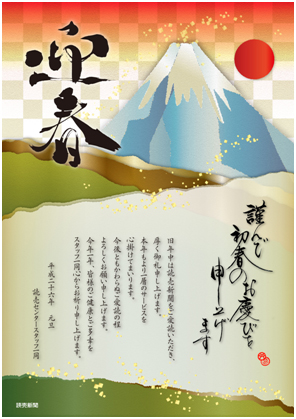 迎春
謹んで
初春のお慶びを
申し上げ
ます
旧年中は読売新聞をご愛読いただき、
厚く御礼申し上げます。
本年もより一層のサービスを
心掛けてまいります。
今後ともかわらぬご愛読の程
よろしくお願い申し上げます。
今年一年、皆様のご健康とご多幸を
スタッフ一同心からお祈り申し上げます。
平成二十六年 元旦
読売センタースタッフ一同
読売新聞